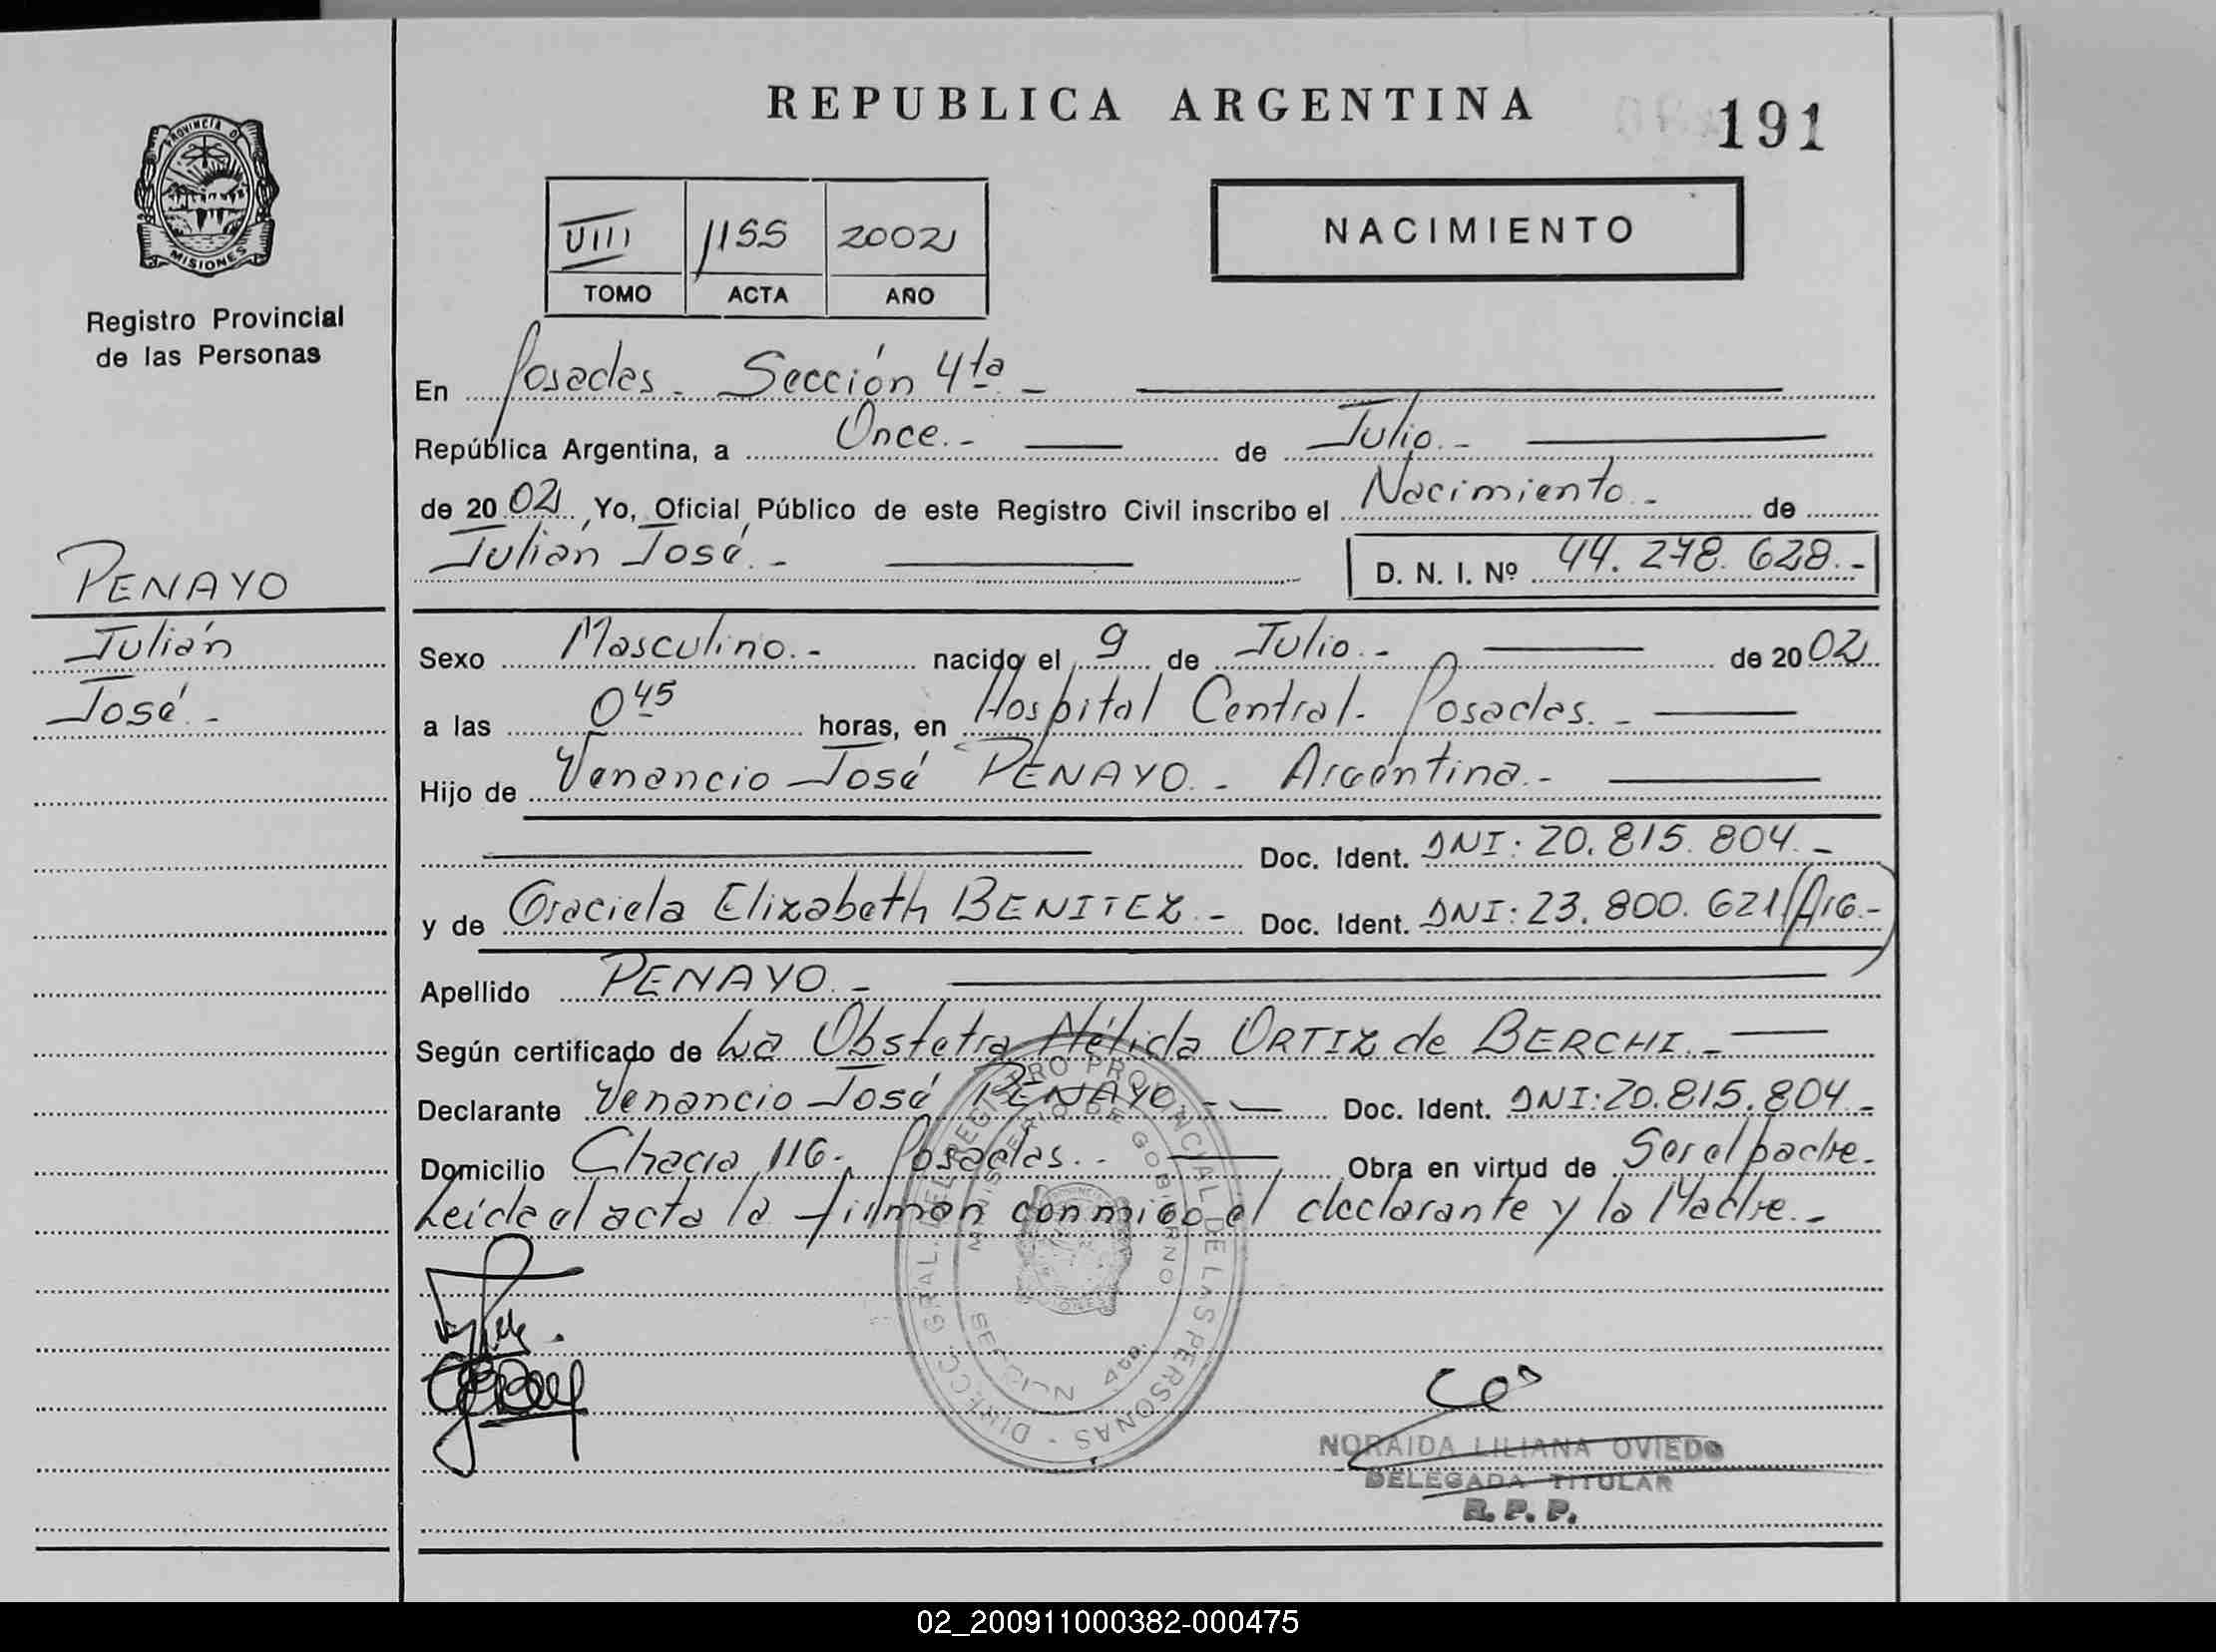 REPUBLICA ARGENTINA
191
PROVINCIA D
MISIONES
Registro Provincial
de las Personas
VIII 1155 2002
TOMO ACTA AÑO
NACIMIENTO
En Posadas - Sección 4ta -
República Argentina, a Once.- de Julio.-
de 20 02 , Yo, Oficial Público de este Registro Civil inscribo el Nacimiento - de
Julián José.- D. N. I. Nº 44.278.628.-
PENAYO
Julián
José.-
Sexo Masculino.- nacido el 9 de Julio.- de 20 02
a las 0 45 horas, en Hospital Central. Posadas.-
Hijo de Venancio José PENAYO.- Argentina.-
Doc. Ident. DNI: 20.815.804.-
y de Graciela Elizabeth BENITEZ.- Doc. Ident. DNI: 23.800.621/Arg.-
Apellido PENAYO.-
Según certificado de La Obstetra Nélida ORTIZ de BERCHI.-
Declarante Venancio José PENAYO - Doc. Ident. DNI: 20.815.804-
Domicilio 116. Posadas.- Obra en virtud de Ser el padre.
Leída el acta la firman conmigo el declarante y la Madre.-
DIRECC. GRAL. DEL REGISTRO PROVINCIAL DE LAS PERSONAS -
MINISTERIO DE GOBIERNO
SECCION 4ta.
NORAIDA LILIANA OVIEDO
DELEGADA TITULAR
R. P. P.
02_200911000382-000475